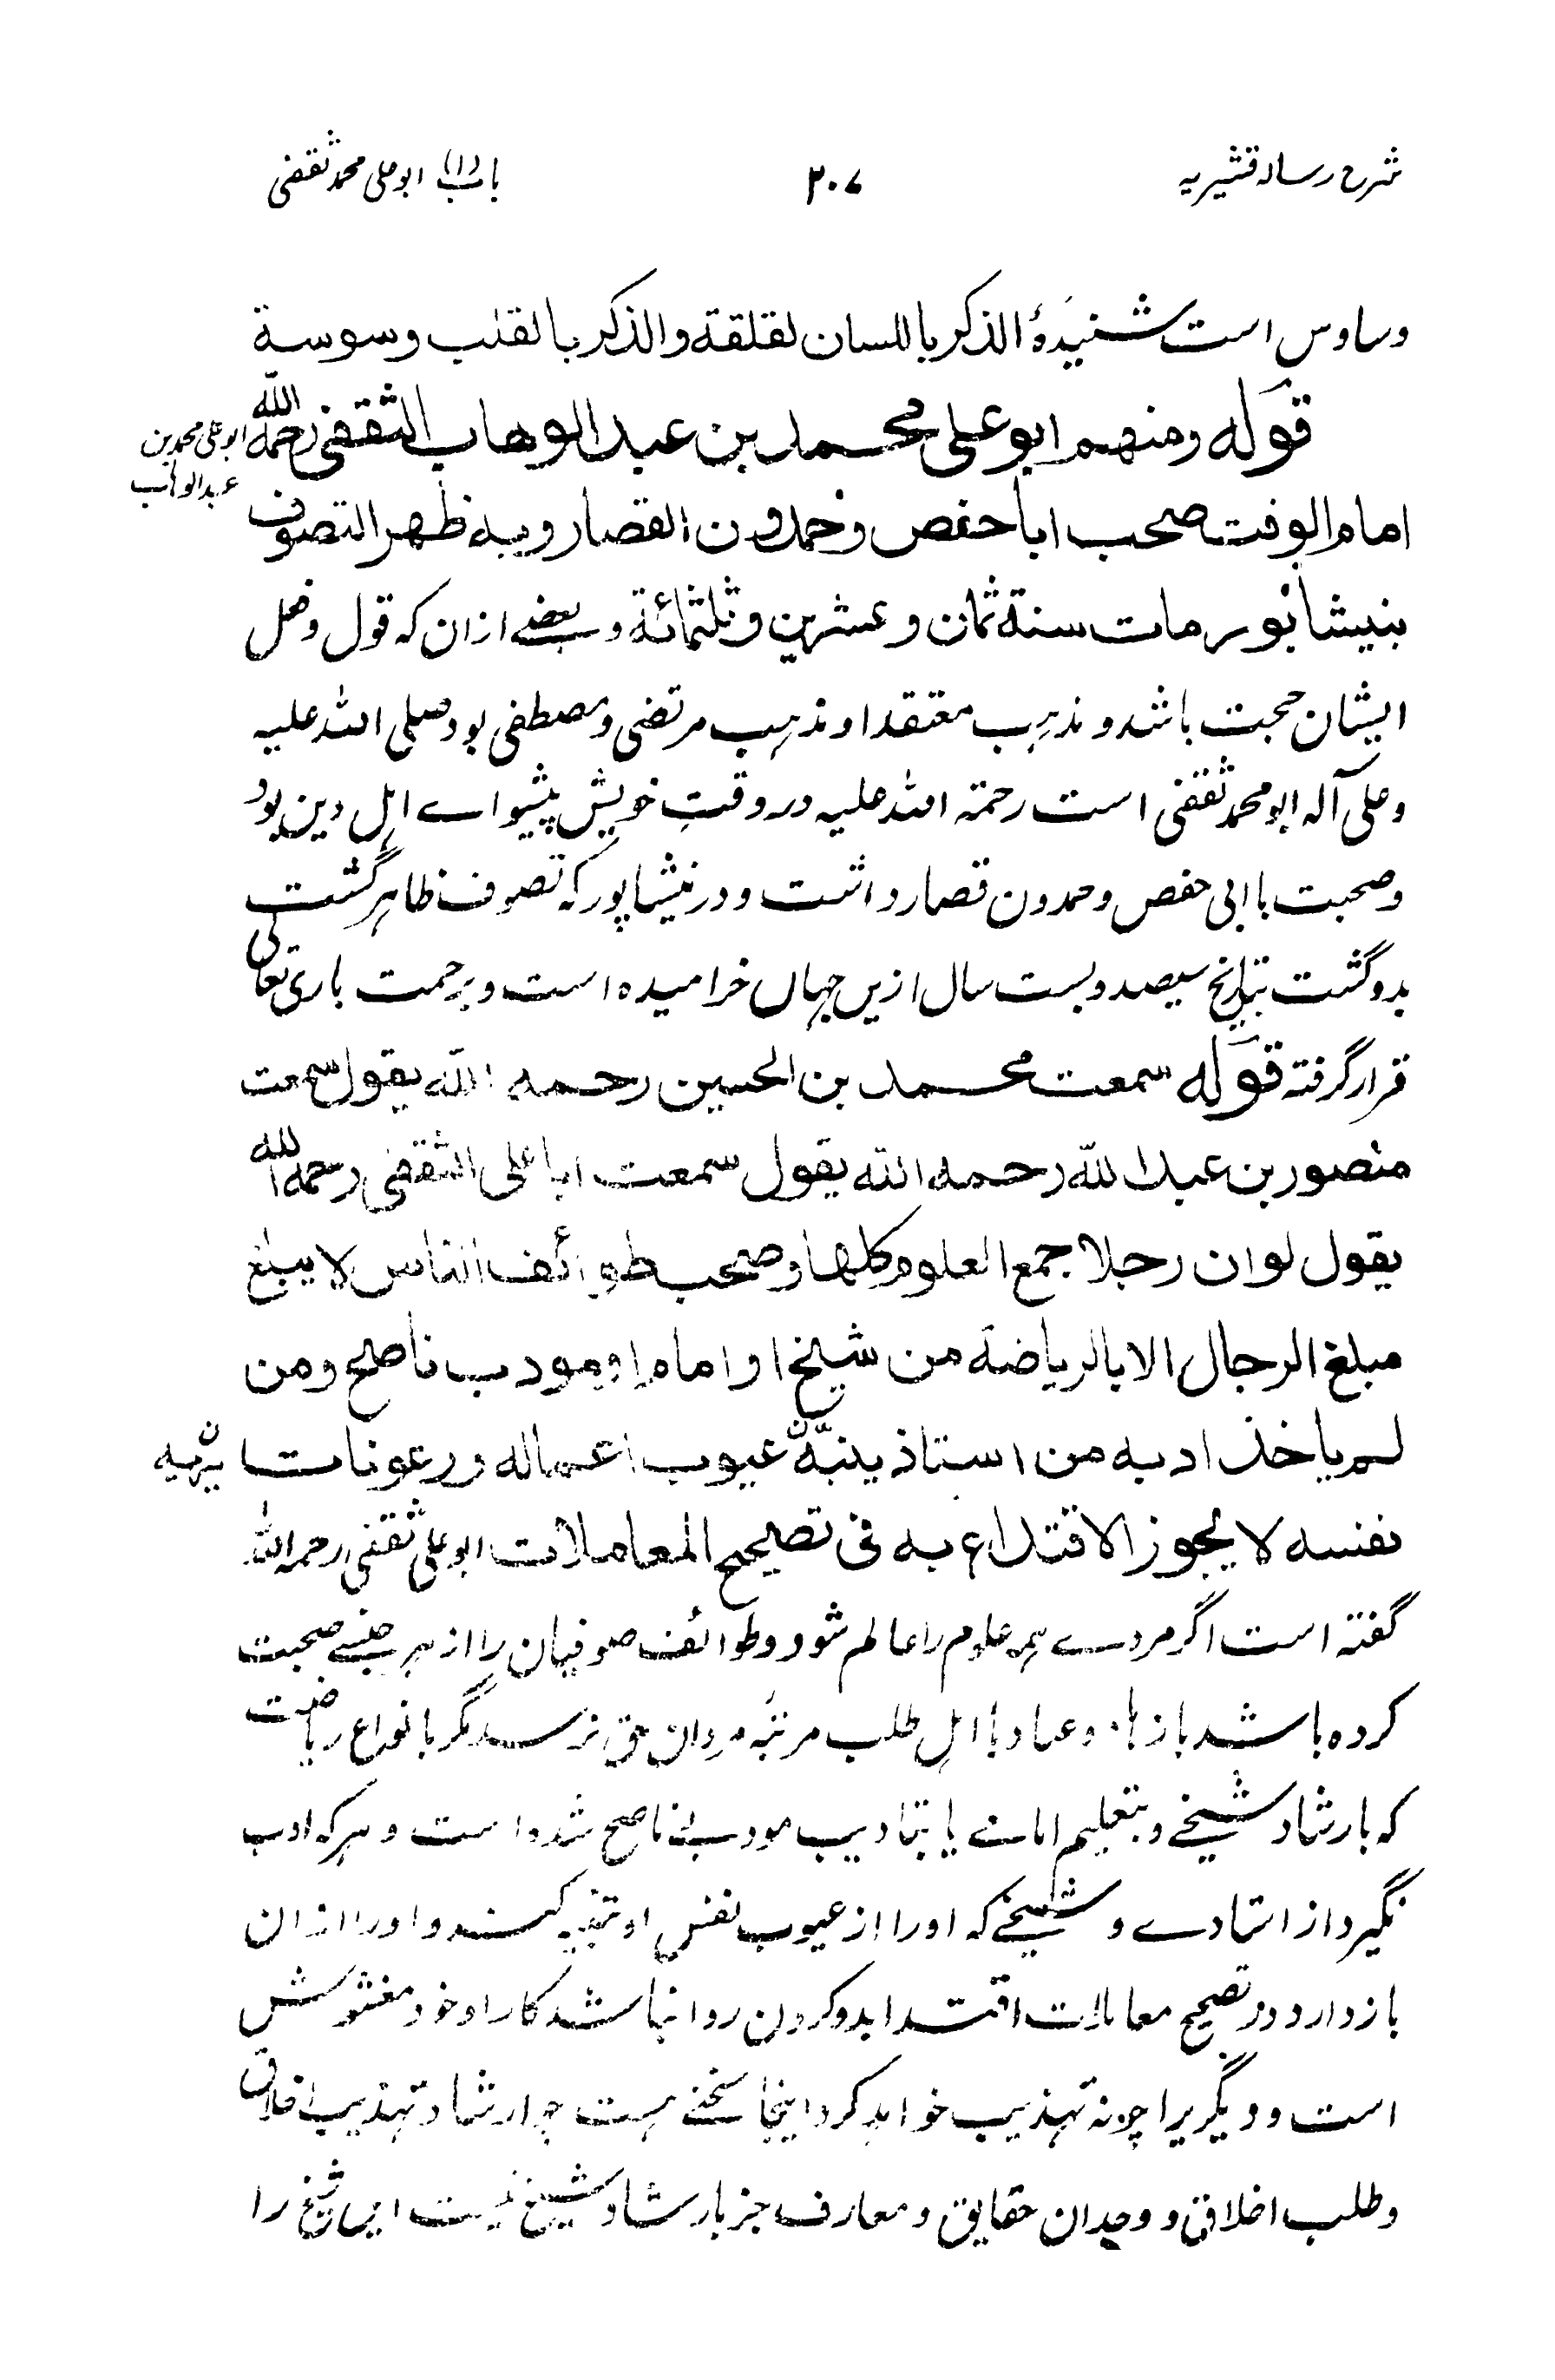 شرح رسالہ قشیریہ
۲۰۷
باب (۱) ابو علی محمد ثقفی
وساوس است شنیدۂ الذکر باللسان لقلقة والذکر بالقلب وسوسة
قوله ومنهم ابو علی محمد بن عبد الوهاب الثقفی رحمه الله
ابو علی محمد بن
عبد الوہاب
امام الوقت صحب ابا حفص وحمدون القصار وبه ظهر التصوف
بنیشابور مات سنة ثمان وعشرین وثلثمائة و بعضے ازان کہ قول و فعل
ایشان حجت باشد و مذہب معتقد او مذہب مرتضی و مصطفی بود صلی اللہ علیہ
وعلی آلہ ابو محمد ثقفی است رحمتہ اللہ علیہ در وقتِ خویش پیشواے اہل دین بود
و صحبت با ابی حفص و حمدون قصار داشت و در نیشاپور کہ تصوف ظاہر گشت
بدو گشت بتاریخ سیصد و بست سال ازیں جہاں خرامیدہ است و برحمت باری تعالی
قرار گرفتہ قوله سمعت محمد بن الحسین رحمه الله یقول سمعت
منصور بن عبد الله رحمه الله یقول سمعت ابا علی الثقفی رحمه الله
یقول لو ان رجلا جمع العلوم کلها وصحب طوائف الناس لا یبلغ
مبلغ الرجال الا بالریاضة من شیخ او امام او مودب ناصح ومن
لم یاخذ ادبه من استاذ ینبّهٗ عیوب اعماله ورعونات
ن یریہ
نفسه لا یجوز الاقتداء به فی تصحیح المعاملات ابو علی ثقفی رحمہ اللہ
گفتہ است اگر مردے ہمہ علوم را عالم شود و طوائف صوفیان را از ہر جنسے صحبت
کردہ باشد با زہاد و عباد با اہل طلب مرتبۂ مردان حق نرسد مگر با نواع ریاضت
کہ بارشاد شیخے و بتعلیم امامے یا بتادیب مودبے ناصح شدہ است و ہر کہ ادب
نگیرد از استادے و شیخے کہ او را از عیوب نفس او تنبیہ کند و او را ازان
باز دارد در تصحیح معاملات اقتدا بدو کردن روا نباشد کار او خود مغشوش
است و دیگریرا چونہ تہذیب خواہد کرد اینجا سخنے ہست چہ ارشاد تہذیب اخلاق
و طلب اخلاق و وجدان حقایق و معارف جز بارشاد شیخ نیست این شیخ را